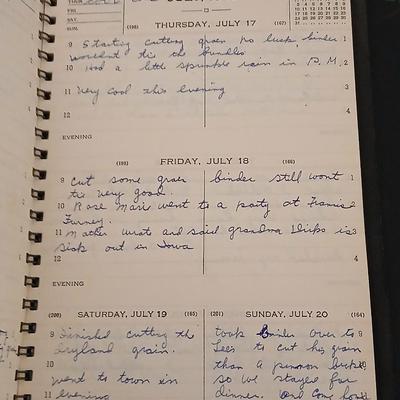 THURSDAY, JULY 17
(198) (167)
9 Starting cutting grain no luck, binder
wouldnt tie the bundles
10 Had a little sprinkle rain in P.M. 2
11 Very cool this evening 3
12 4
EVENING
(199) FRIDAY, JULY 18 (166)
9 cut some grain binder still wont 1
tie very good.
10 Rose Marie went to a party at Francis 2
Furney.
11 Mother wrote and said grandma is 3
12 sick out in Iowa 4
EVENING
(200) SATURDAY, JULY 19 (165)
9 Finished cutting the
dryland grain.
10
went to town in
11 evening
(201) SUNDAY, JULY 20 (164)
took binder over to 9
Lees to cut his grain
than a pinnon broke 10
so we stayed for
dinner. and come home 11